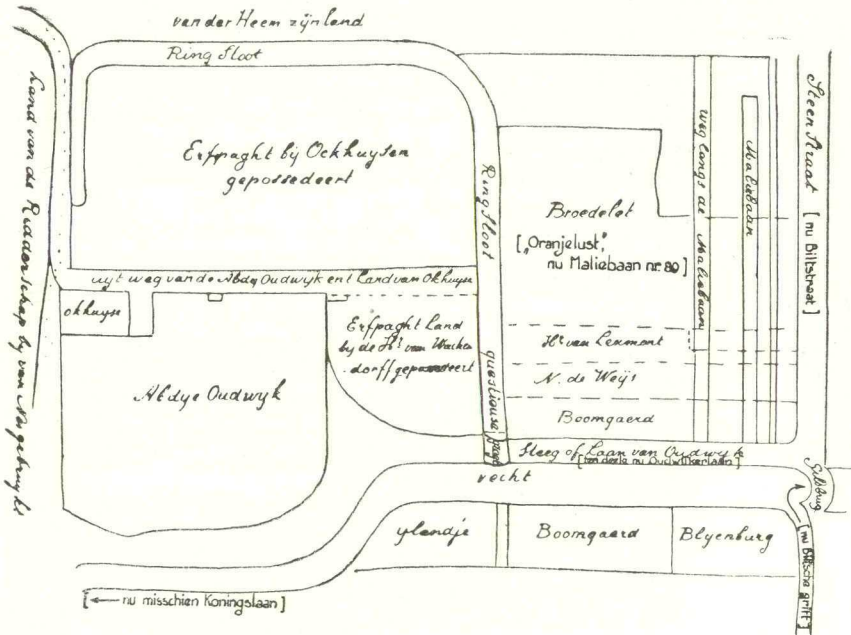 van der Heem zijn land
Ring sloot
Land van de Ridderschap by van Nes gebruykt
Erfpaght bij Ockhuysen
gepossedeert
Ring sloot
Broedelet
[„Oranjelust",
nu Maliebaan nr. 80]
weg langs de Maliebaan
Maliebaan
Steen Straat [nu Biltstraat]
uyt weg van de Abdy Oudwyk ent Land van Okhuyse
okhuyse
Erfpaght Land
by de Hr. van Wachen
dorff gepossedeert
Hr. van Leumont
N. de Weijs
Abdye Oudwyk
questieuse
Boomgaerd
Steeg of Laan van Oudwyk
[ten deele nu Oudwijkerlaan]
vecht
Gildbrug
ylandje
Boomgaerd
Blyenburg
[nu Biltsche grift]
[← nu misschien Koningslaan]